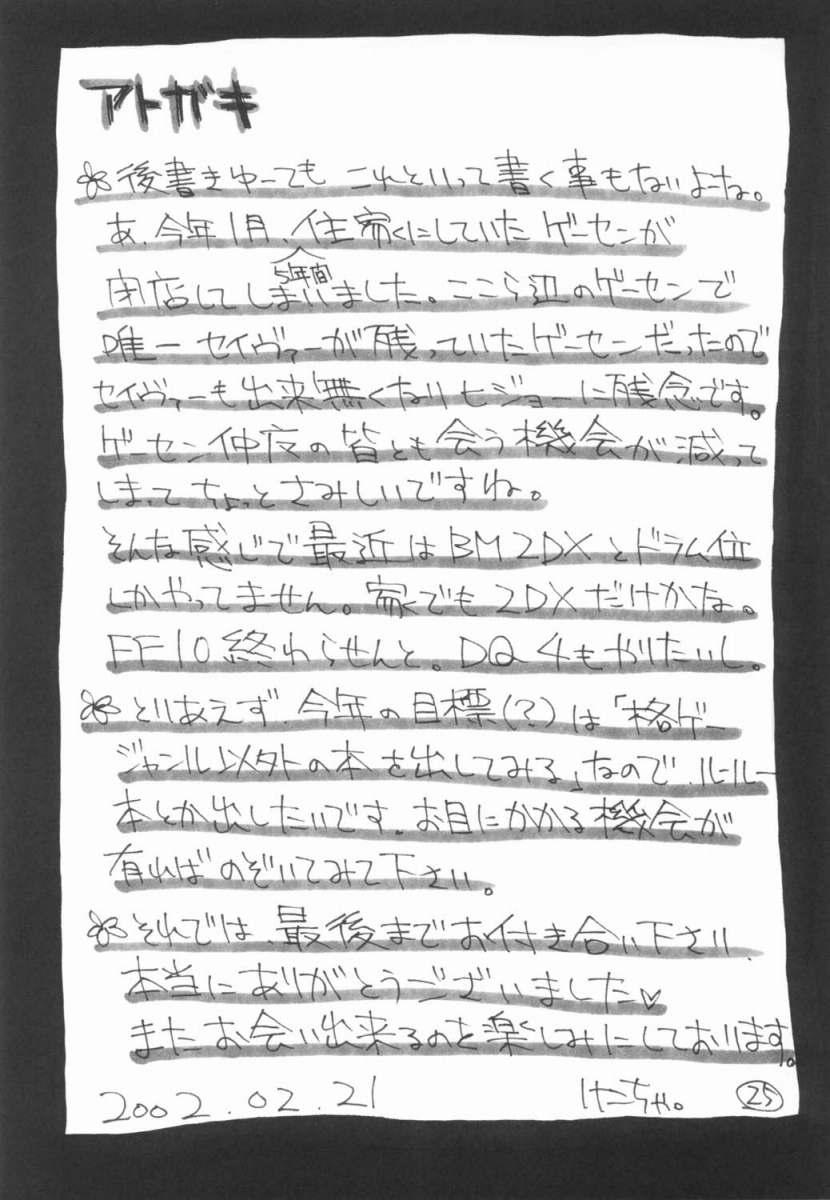 アトガキ
後書きゆーても これといって書く事もないよーね。
あ、今年1月、住家にしていたゲーセンが
5年間
閉店してしまいました。ここら辺のゲーセンで
唯一セイヴァーが残っていたゲーセンだったので
セイヴァーも出来無くなりヒジョーに残念です。
ゲーセン仲間の皆とも会う機会が減って
しまってちょっとさみしいですね。
そんな感じで最近はBM2DXとドラム位
しかやってません。家でも2DXだけかな。
FF10終わらせんと。DQ4もやりたいし。
とりあえず、今年の目標(?)は「格ゲー
ジャンル以外の本を出してみる」なので、ルールー
本とか出したいです。お目にかかる機会が
有ればのぞいてみて下さい。
それでは、最後までお付き合い下さい、
本当にありがとうございました♡
またお会い出来るのを楽しみにしております。
2002.02.21
けこちゃ。
25